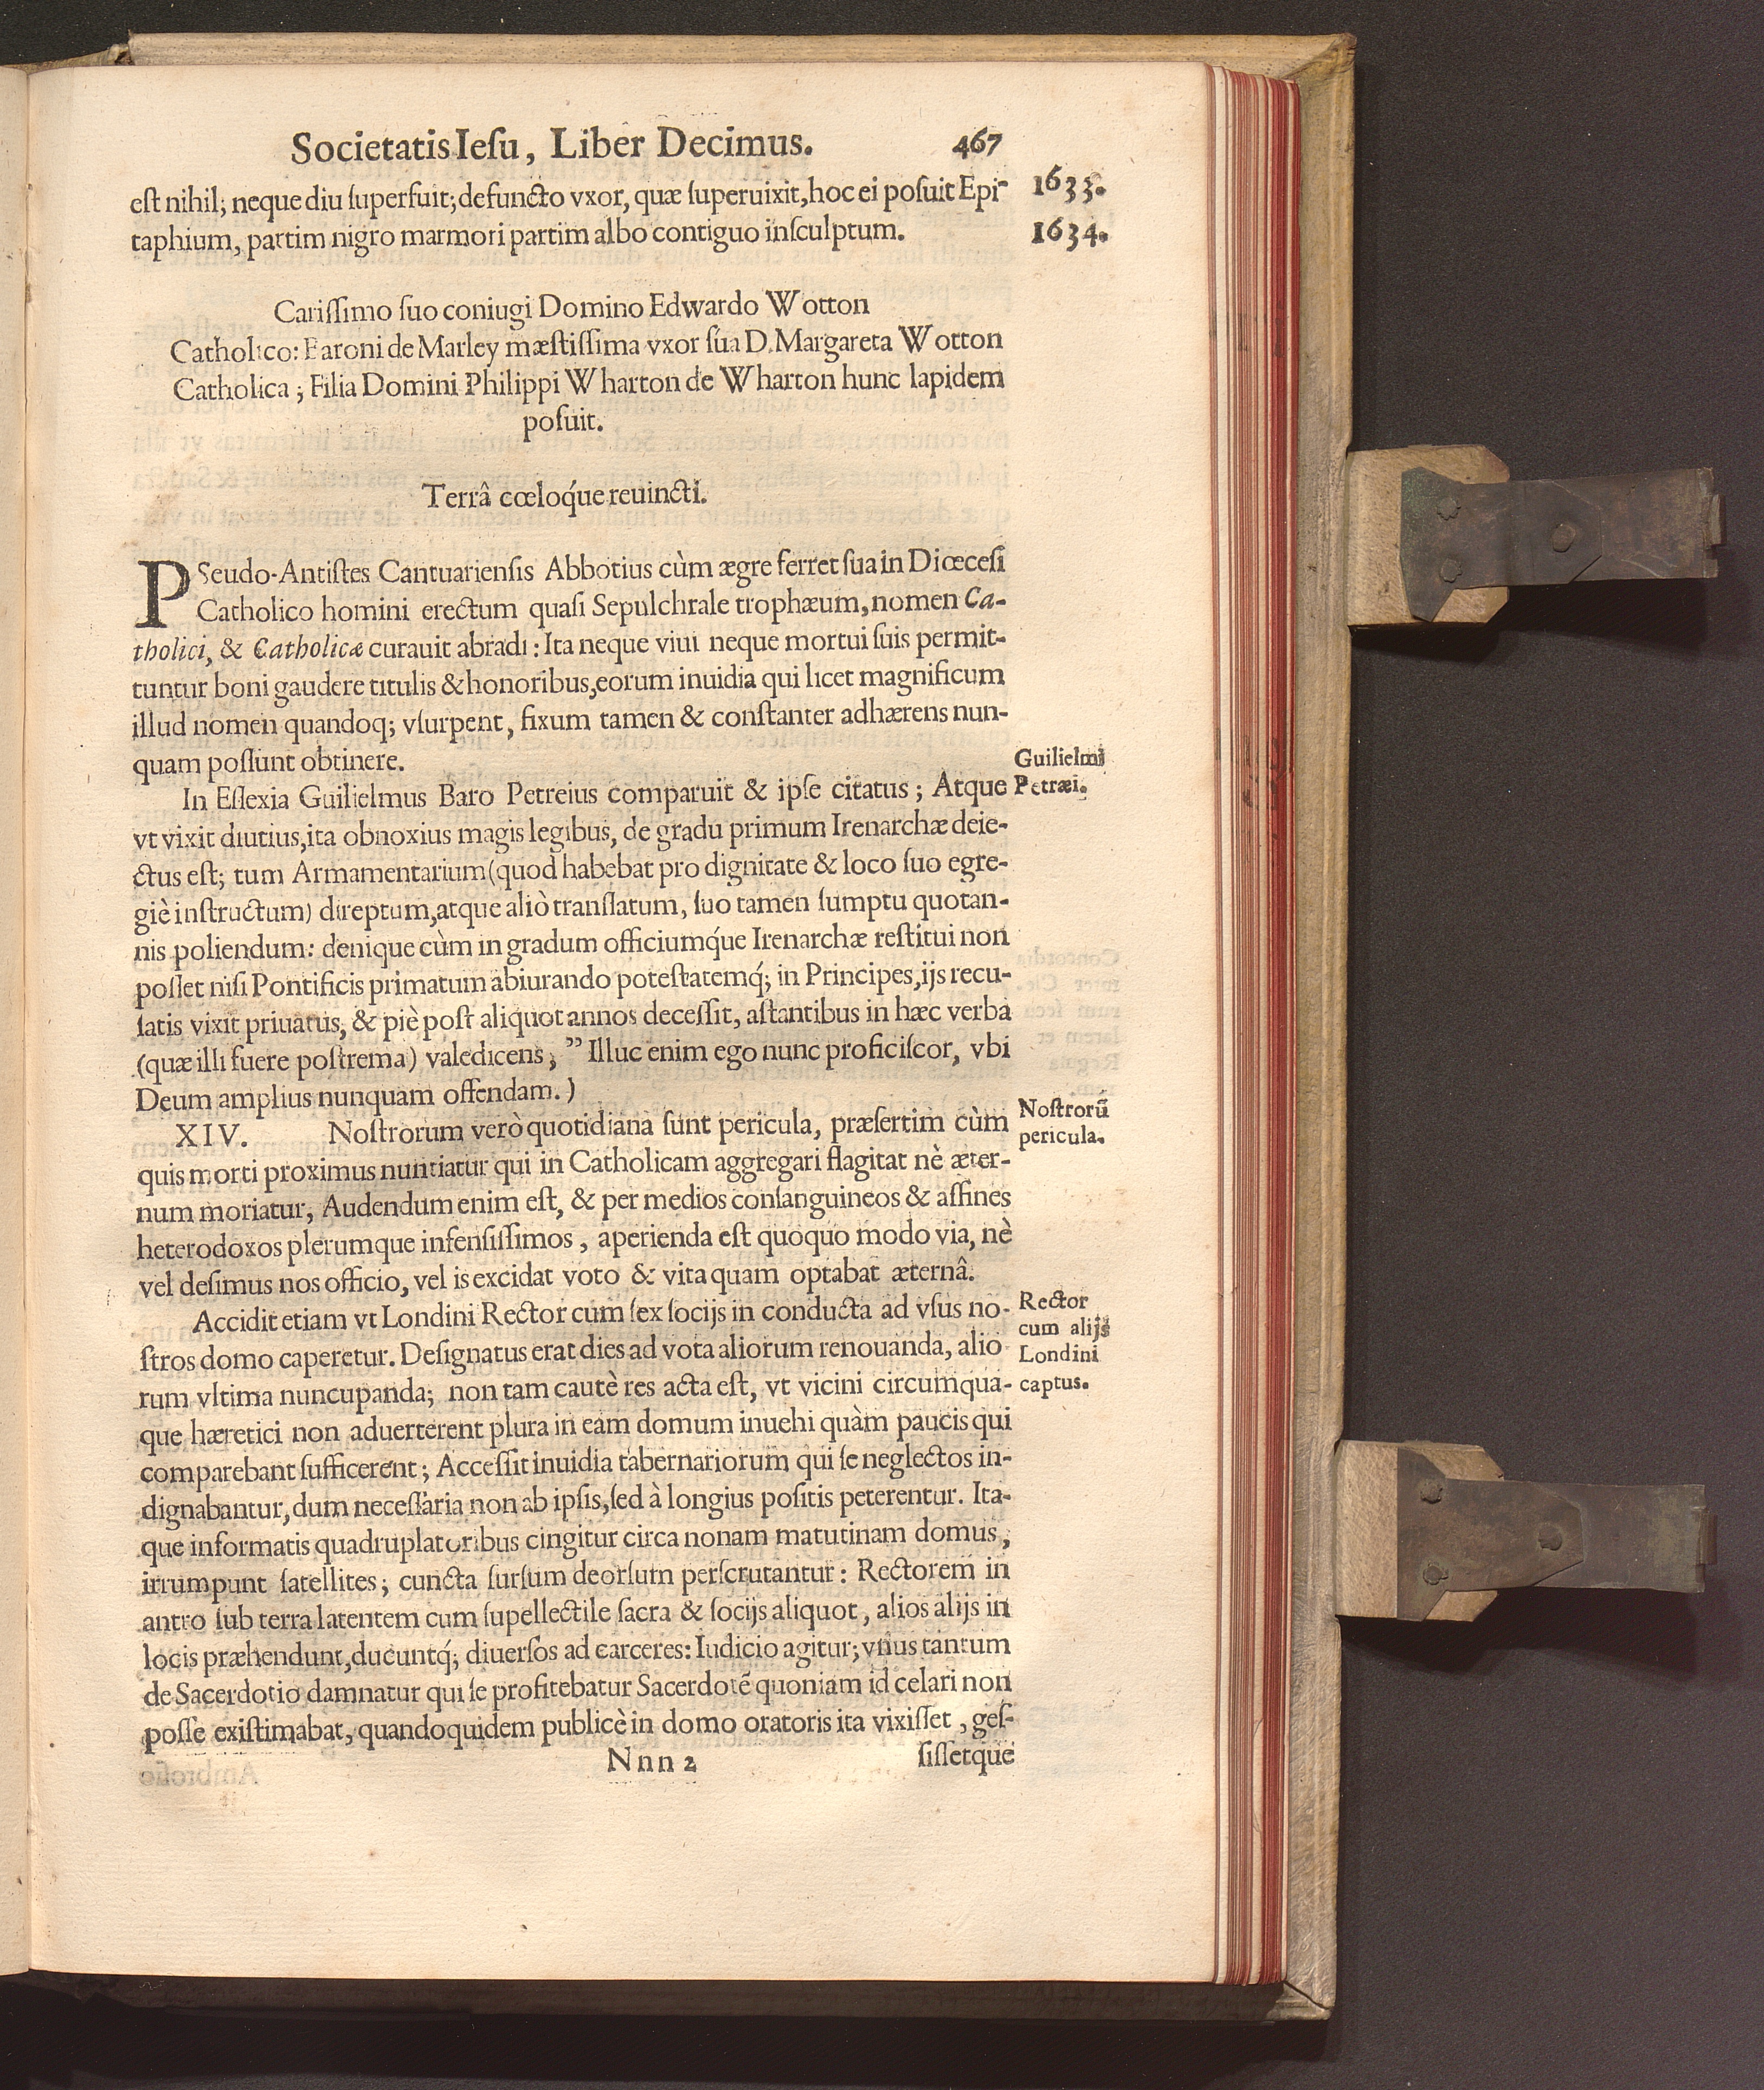 Societatis Iesu, Liber Decimus. 467
est nihil; neque diu superfuit; defuncto vxor, quæ superuixit, hoc ei posuit Epi- 1633.
taphium, partim nigro marmori partim albo contiguo insculptum. 1634.
Carissimo suo coniugi Domino Edwardo Wotton
Catholico: Baroni de Marley mæstissima vxor sua D. Margareta Wotton
Catholica; Filia Domini Philippi Wharton de Wharton hunc lapidem
posuit.
Terrâ cœloq́ue reuincti.
PSeudo-Antistes Cantuariensis Abbotius cùm ægre ferret sua in Diœcesi
Catholico homini erectum quasi Sepulchrale trophæum, nomen Ca-
tholici, & Catholicæ curauit abradi: Ita neque viui neque mortui suis permit-
tuntur boni gaudere titulis & honoribus, eorum inuidia qui licet magnificum
illud nomen quandoq; vsurpent, fixum tamen & constanter adhærens nun-
quam possunt obtinere.
Guilielmi
Petræi.
In Essexia Guilielmus Baro Petreius comparuit & ipse citatus; Atque
vt vixit diutius, ita obnoxius magis legibus, de gradu primum Irenarchæ deie-
ctus est; tum Armamentarium (quod habebat pro dignitate & loco suo egre-
giè instructum) direptum, atque aliò translatum, suo tamen sumptu quotan-
nis poliendum: denique cùm in gradum officiumq́ue Irenarchæ restitui non
posset nisi Pontificis primatum abiurando potestatemq́; in Principes, ijs recu-
satis vixit priuatus, & piè post aliquot annos decessit, astantibus in hæc verba
(quæ illi fuere postrema) valedicens; ” Illuc enim ego nunc proficiscor, vbi
Deum amplius nunquam offendam.)
Nostrorũ
pericula.
XIV. Nostrorum verò quotidiana sunt pericula, præsertim cùm
quis morti proximus nuntiatur qui in Catholicam aggregari flagitat nè æter-
num moriatur, Audendum enim est, & per medios consanguineos & affines
heterodoxos plerumque infensissimos, aperienda est quoquo modo via, nè
vel desimus nos officio, vel is excidat voto & vita quam optabat æternâ.
Rector
cum alijs
Londini
captus.
Accidit etiam vt Londini Rector cum sex socijs in conducta ad vsus no-
stros domo caperetur. Designatus erat dies ad vota aliorum renouanda, alio
rum vltima nuncupanda; non tam cautè res acta est, vt vicini circumqua-
que hæretici non aduerterent plura in eam domum inuehi quàm paucis qui
comparebant sufficerent; Accessit inuidia tabernariorum qui se neglectos in-
dignabantur, dum necessaria non ab ipsis, sed à longius positis peterentur. Ita-
que informatis quadruplatoribus cingitur circa nonam matutinam domus,
irrumpunt satellites; cuncta sursum deorsum perscrutantur: Rectorem in
antro sub terra latentem cum supellectile sacra & socijs aliquot, alios alijs in
locis præhendunt, ducuntq́; diuersos ad carceres: Iudicio agitur; vnus tantum
de Sacerdotio damnatur qui se profitebatur Sacerdotẽ quoniam id celari non
posse existimabat, quandoquidem publicè in domo oratoris ita vixisset, ges-
Nnn 2 sissetque